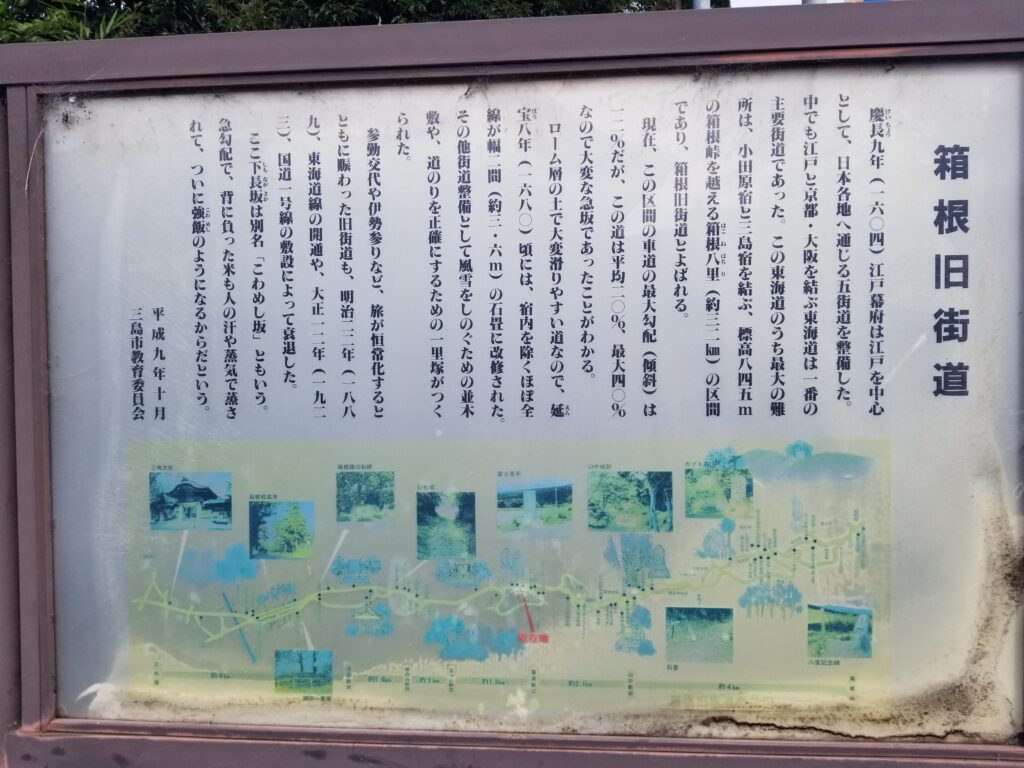 箱根旧街道
慶長九年（一六〇四）江戸幕府は江戸を中心
として、日本各地へ通じる五街道を整備した。
中でも江戸と京都・大阪を結ぶ東海道は一番の
主要街道であった。この東海道のうち最大の難
所は、小田原宿と三島宿を結ぶ、標高八四五m
の箱根峠を越える箱根八里（約三二㎞）の区間
であり、箱根旧街道とよばれる。
現在、この区間の車道の最大勾配（傾斜）は
一二％だが、この道は平均二〇％、最大四〇％
なので大変な急坂であったことがわかる。
ローム層の土で大変滑りやすい道なので、延
宝八年（一六八〇）頃には、宿内を除くほぼ全
線が幅二間（約三・六m）の石畳に改修された。
その他街道整備として風雪をしのぐための並木
敷や、道のりを正確にするための一里塚がつく
られた。
参勤交代や伊勢参りなど、旅が恒常化すると
ともに賑わった旧街道も、明治二二年（一八八
九）、東海道線の開通や、大正一二年（一九二
三）、国道一号線の敷設によって衰退した。
ここ下長坂は別名「こわめし坂」ともいう。
急勾配で、背に負った米も人の汗や蒸気で蒸さ
れて、ついに強飯のようになるからだという。
平成九年十月
三島市教育委員会
三嶋大社
富士見平
山中城跡
現在地
石畳
八里記念碑
約4㎞
約1㎞
約1.5㎞
約2.1㎞
約4㎞